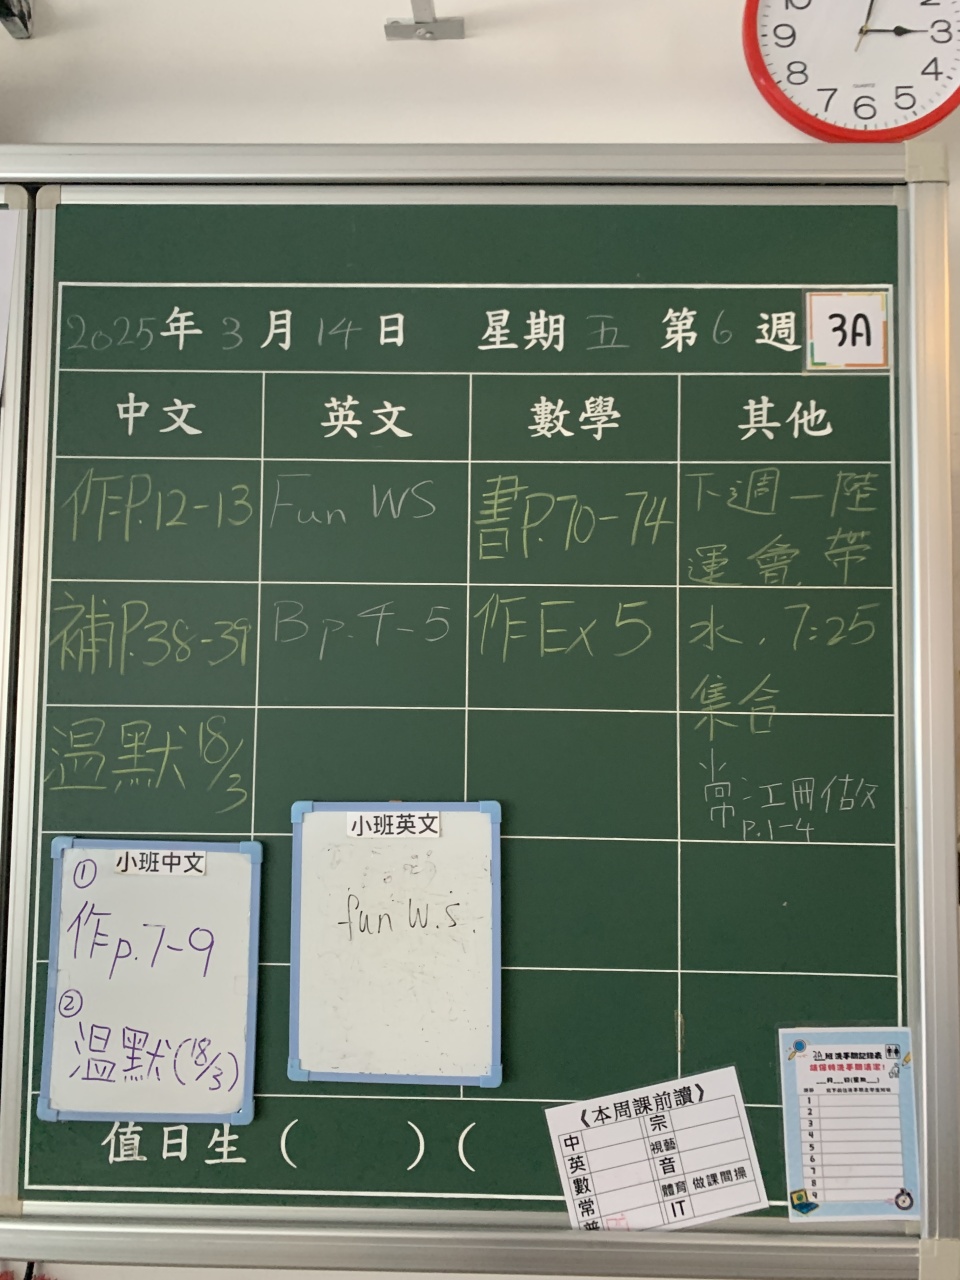 10 2
9 3
8 4
7 6 5
QUARTZ
2025年 3 月 14 日 星期 五 第 6 週 3A
中文 英文 數學 其他
作P.12-13
補P.38-39
溫默 18/3
Fun WS
B p.4-5
書P.70-74
作Ex 5
下週一陸
運會,帶
水,7:25
集合
常:工冊做
p.1-4
小班中文
①
作p.7-9
②
溫默(18/3)
小班英文
fun w.s.
值日生( )(
《本周課前讀》
中 宗
英 視藝
數 音
常 體育 做課間操
普 IT
月 日(星期 )
1
2
3
4
5
6
7
8
9